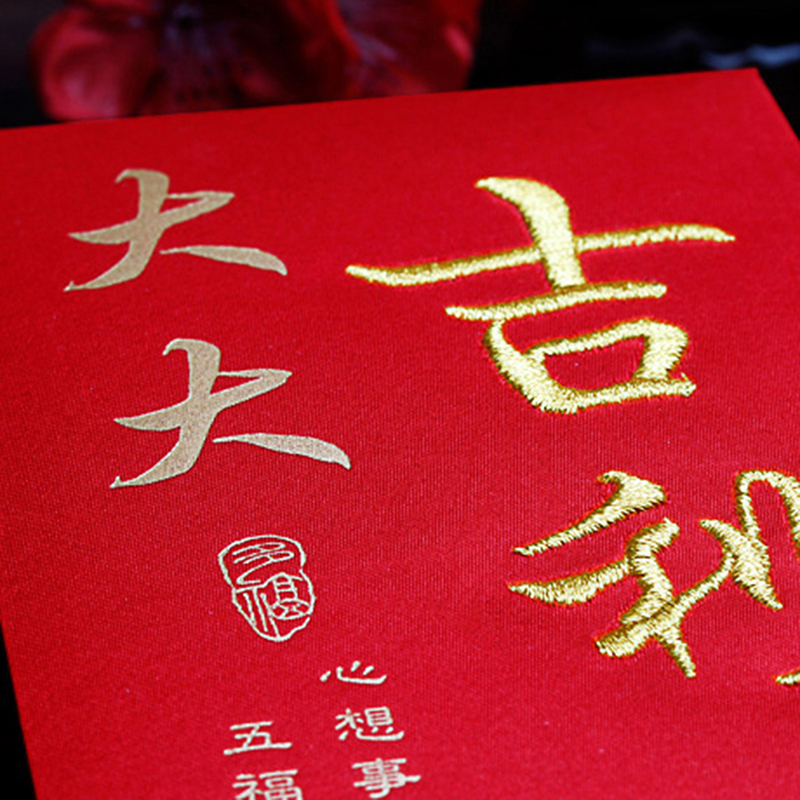 大吉
大利
多福
心想事
五福